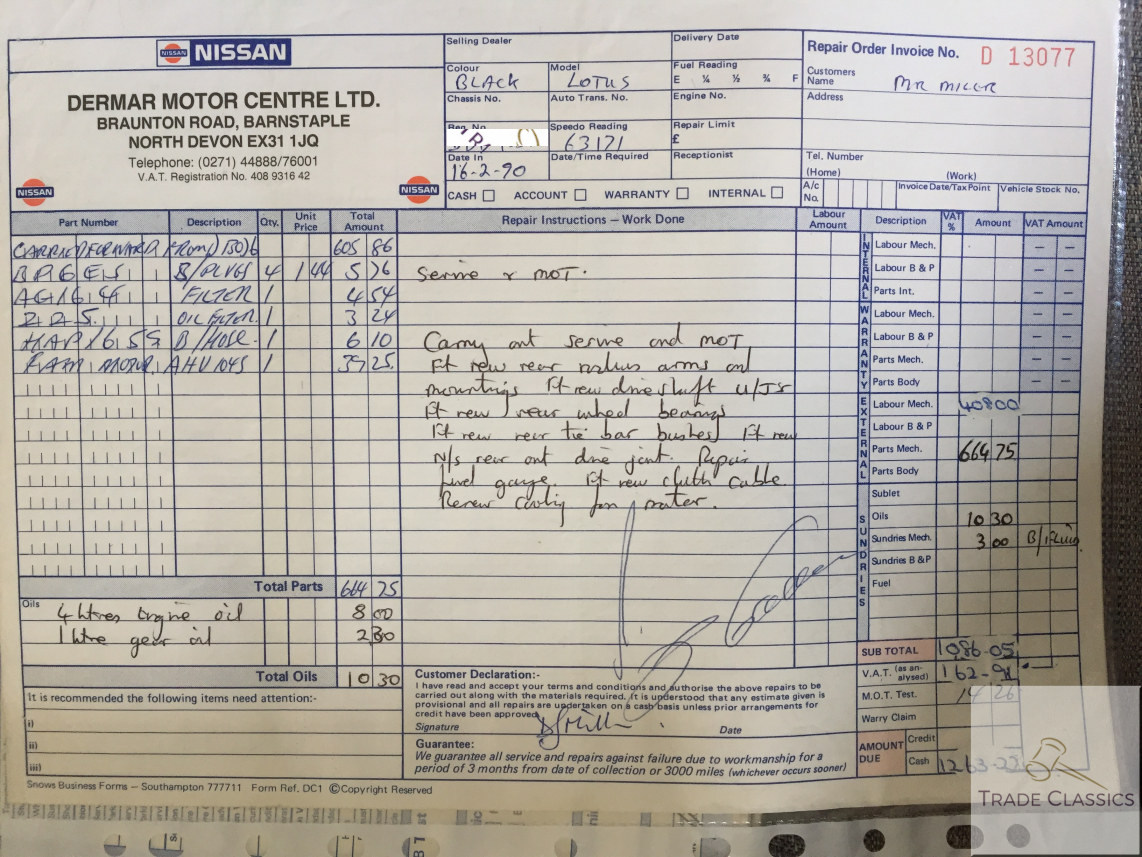 NISSAN
DERMAR MOTOR CENTRE LTD.
BRAUNTON ROAD, BARNSTAPLE
NORTH DEVON EX31 1JQ
Telephone: (0271) 44888/76001
V.A.T. Registration No. 408 9316 42
NISSAN
NISSAN
Selling Dealer
Delivery Date
Colour BLACK
Model LOTUS
Fuel Reading
E ¼ ½ ¾ F
Chassis No.
Auto Trans. No.
Engine No.
Reg. No.
Speedo Reading 63171
Repair Limit
£
Date In 16-2-90
Date/Time Required
Receptionist
CASH ACCOUNT WARRANTY INTERNAL
Repair Order Invoice No. D 13077
Customers Name MR MILLER
Address
Tel. Number
(Home) (Work)
A/c No.
Invoice Date/Tax Point
Vehicle Stock No.
Part Number Description Qty. Unit Price Total Amount
CARRIED FORWARD FROM 13076 605 86
BP6ES B/PLUGS 4 1 44 5 76
FILTER 1 4 54
OIL FILTER 1 3 24
B/HOSE 1 6 10
FAN MOTOR AHU1045 1 39 25
Total Parts 664 75
Oils
4 litres Engine oil 8 00
1 litre gear oil 2 30
Total Oils 10 30
It is recommended the following items need attention:-
i)
ii)
iii)
Repair Instructions – Work Done
Labour Amount
Service & MOT.
Carry out service and MOT
Ft new rear radius arms and
mountings Ft new driveshaft U/Js
Ft new rear wheel bearings
Ft new rear tie bar bushes Ft new
N/s rear out drive joint. Repair
fuel gauge. Ft new clutch cable.
Renew cooling fan motor.
Customer Declaration:-
I have read and accept your terms and conditions and authorise the above repairs to be
carried out along with the materials required. It is understood that any estimate given is
provisional and all repairs are undertaken on a cash basis unless prior arrangements for
credit have been approved.
Signature
Date
Guarantee:
We guarantee all service and repairs against failure due to workmanship for a
period of 3 months from date of collection or 3000 miles (whichever occurs sooner)
Description VAT % Amount VAT Amount
INTERNAL
Labour Mech. – –
Labour B & P – –
Parts Int. – –
WARRANTY
Labour Mech. – –
Labour B & P – –
Parts Mech. – –
Parts Body – –
EXTERNAL
Labour Mech. 408 00
Labour B & P
Parts Mech. 664 75
Parts Body
SUNDRIES
Sublet
Oils 10 30
Sundries Mech. 3 00
Sundries B & P
Fuel
SUB TOTAL 1086-05
V.A.T. (as analysed) 162-91
M.O.T. Test. 14 26
Warry Claim
AMOUNT DUE
Credit
Cash 1263-22
Snows Business Forms – Southampton 777711 Form Ref. DC1 ©Copyright Reserved
TRADE CLASSICS